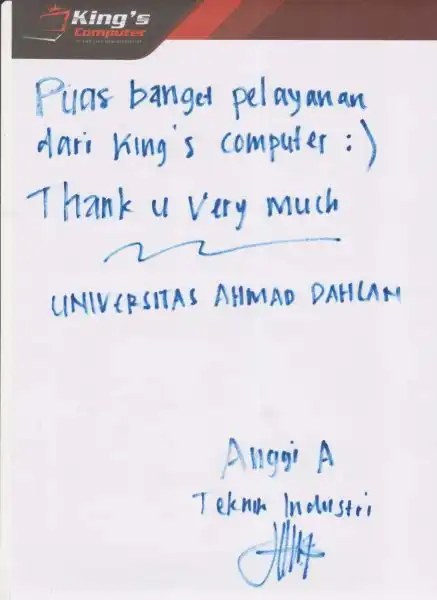 King's
Computer
Puas banget pelayanan
dari King's computer :)
Thank u Very Much
UNIVERSITAS AHMAD DAHLAN
Anggi A
Teknik Industri